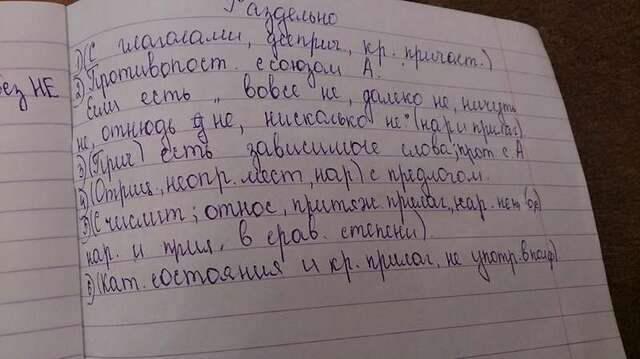 Раздельно
без НЕ
1) (С глаголами, дееприч., кр. причаст.)
2) Противопост. с союзом А.
Если есть „ вовсе не, далеко не, ничуть
не, отнюдь не, нисколько не" (нар и прилаг)
3) (Прич) есть зависимые слова; прот. с А
4) (Отриц., неопр. мест, нар) с предлогом.
5) (С числит; относ, притяж прилаг., нар.
нар. и прил. в срав. степени)
6) (Кат. состояния и кр. прилаг. не употр. в полф)